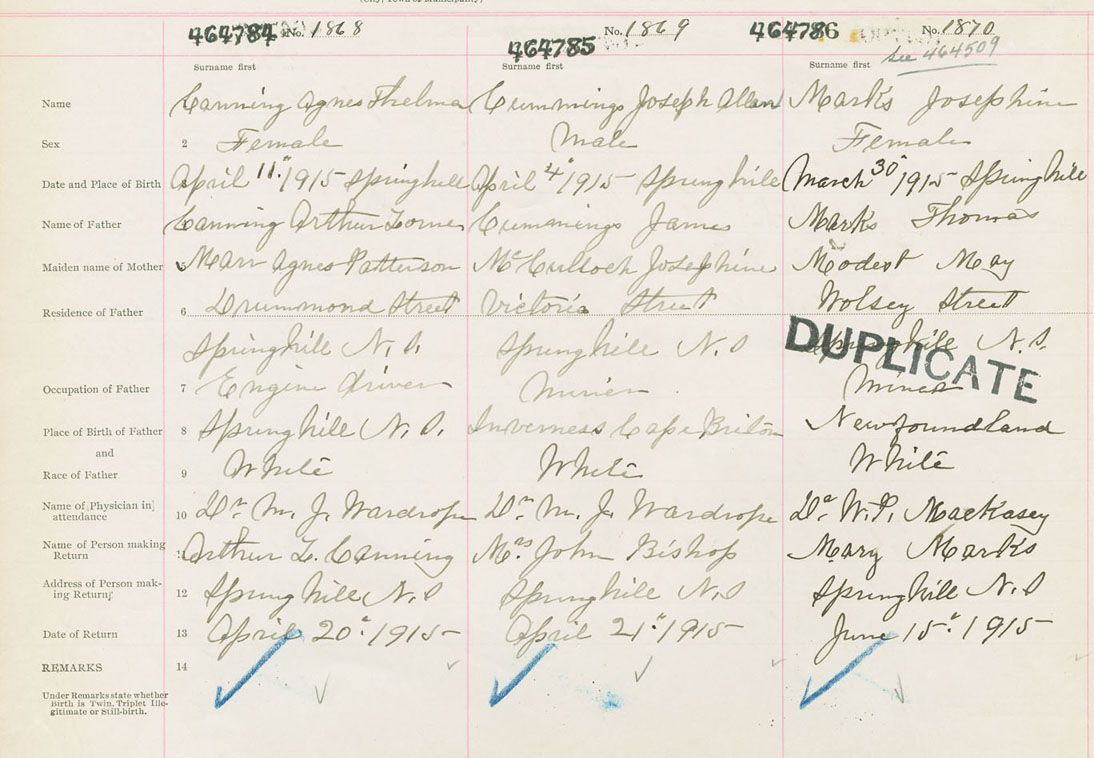 464784 No. 1868
464785 No. 1869
464786 No. 1870
see 464509
Surname first Surname first Surname first
Name Canning Agnes Thelma Cummings Joseph Allan Marks Josephine
Sex 2 Female Male Female
Date and Place of Birth April 11" 1915 Springhill April 4" 1915 Springhill March 30" 1915 Springhill
Name of Father Canning Arthur Lorne Cummings James Marks Thomas
Maiden name of Mother Marr Agnes Patterson McCulloch Josephine Modest May
Residence of Father 6 Drummond Street Victoria Street Wolsey Street
Springhill N.S. Springhill N.S Springhill N.S.
DUPLICATE
Occupation of Father 7 Engine driver Miner Miner
Place of Birth of Father 8 Springhill N.S. Inverness Cape Briton Newfoundland
and
Race of Father 9 White White White
Name of Physician in attendance 10 Dr M. J. Wardrope Dr M. J. Wardrope Dr W.P. MacKasey
Name of Person making Return 11 Arthur L. Canning Mrs John Bishop Mary Marks
Address of Person making Return 12 Springhill N.S Springhill N.S Springhill N.S
Date of Return 13 April 20" 1915 April 21" 1915 June 15" 1915
REMARKS 14
Under Remarks state whether
Birth is Twin, Triplet Ille-
gitimate or Still-birth.